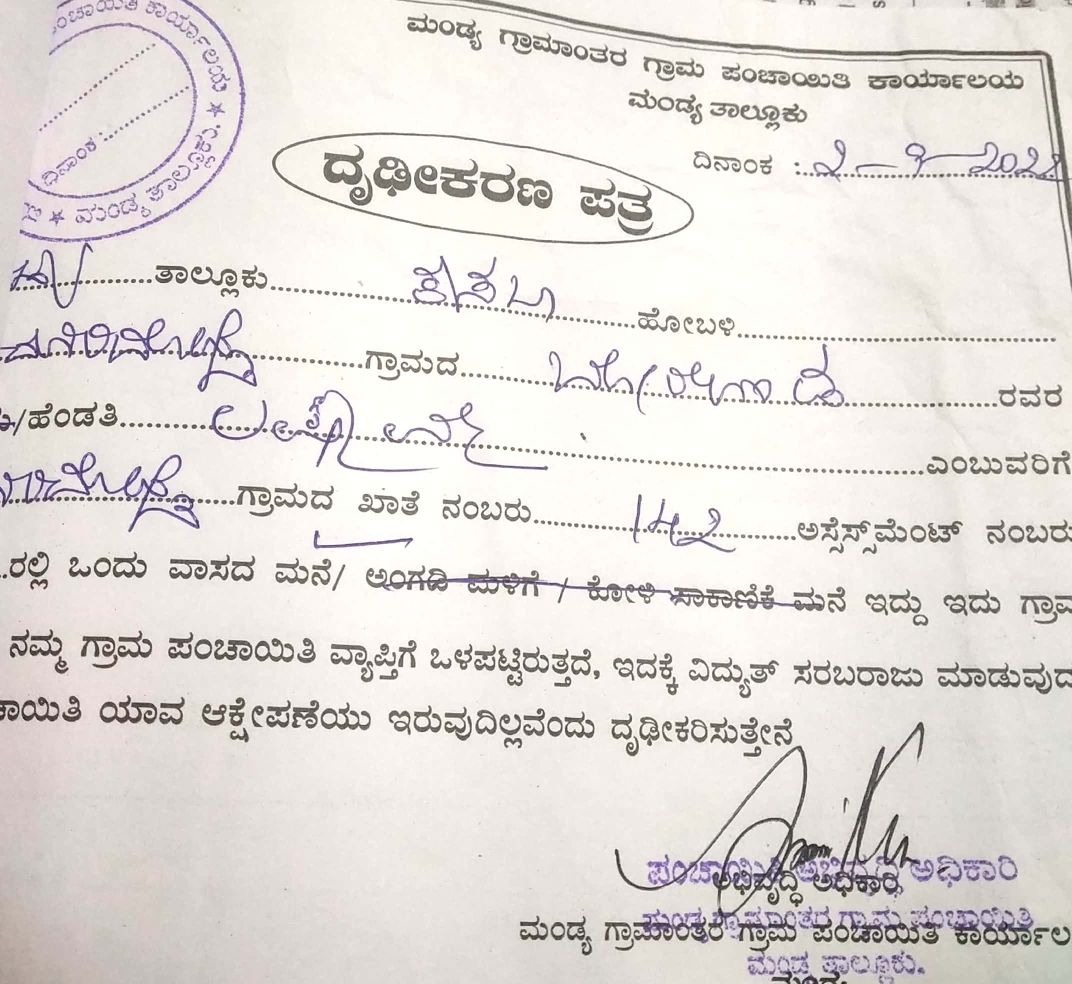 ಪಂಚಾಯಿತಿ ಕಾರ್ಯಾಲಯ ★ ಮಂಡ್ಯ ತಾಲ್ಲೂಕು ★
ದಿನಾಂಕ :
ಮಂಡ್ಯ ಗ್ರಾಮಾಂತರ ಗ್ರಾಮ ಪಂಚಾಯಿತಿ ಕಾರ್ಯಾಲಯ
ಮಂಡ್ಯ ತಾಲ್ಲೂಕು
ದಿನಾಂಕ :
ದೃಢೀಕರಣ ಪತ್ರ
ತಾಲ್ಲೂಕು ಕಸಬಾ ಹೋಬಳಿ
ಗ್ರಾಮದ ರವರ
/ಹೆಂಡತಿ ಎಂಬುವರಿಗೆ
ಗ್ರಾಮದ ಖಾತೆ ನಂಬರು 142 ಅಸ್ಸೆಸ್ಸ್‌ಮೆಂಟ್ ನಂಬರು
ರಲ್ಲಿ ಒಂದು ವಾಸದ ಮನೆ/ ಅಂಗಡಿ ಮಳಿಗೆ / ಕೋಳಿ ಸಾಕಾಣಿಕೆ ಮನೆ ಇದ್ದು ಇದು ಗ್ರಾಮ
ನಮ್ಮ ಗ್ರಾಮ ಪಂಚಾಯಿತಿ ವ್ಯಾಪ್ತಿಗೆ ಒಳಪಟ್ಟಿರುತ್ತದೆ, ಇದಕ್ಕೆ ವಿದ್ಯುತ್ ಸರಬರಾಜು ಮಾಡುವುದ
ಚಾಯಿತಿ ಯಾವ ಆಕ್ಷೇಪಣೆಯು ಇರುವುದಿಲ್ಲವೆಂದು ದೃಢೀಕರಿಸುತ್ತೇನೆ
ಪಂಚಾಯಿತಿ ಅಭಿವೃದ್ಧಿ ಅಧಿಕಾರಿ
ಅಭಿವೃದ್ಧಿ ಅಧಿಕಾರಿ
ಮಂಡ್ಯ ಗ್ರಾಮಾಂತರ ಗ್ರಾಮ ಪಂಚಾಯಿತಿ
ಮಂಡ್ಯ ಗ್ರಾಮಾಂತರ ಗ್ರಾಮ ಪಂಚಾಯಿತಿ ಕಾರ್ಯಾಲ
ಮಂಡ್ಯ ತಾಲ್ಲೂಕು.